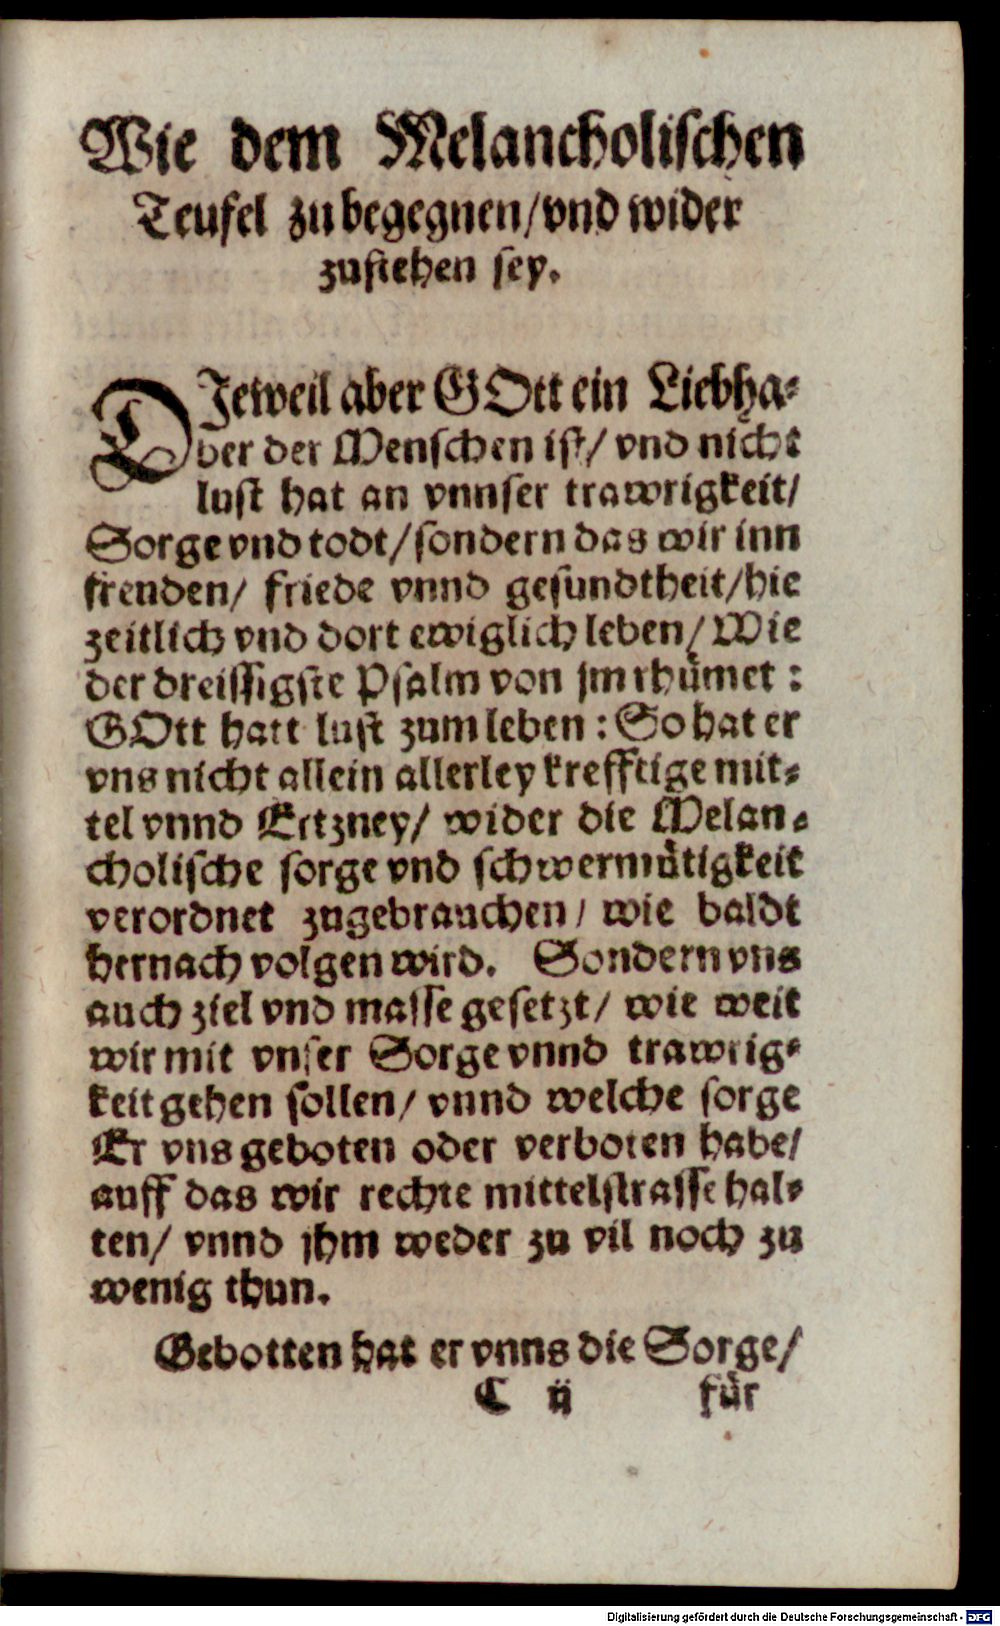 Wie dem Melancholischen
Teufel zu begegnen/vnd wider
zustehen sey.
DJeweil aber GOtt ein Liebha-
ber der Menschen ist/ vnd nicht
lust hat an vnnser trawrigkeit/
Sorge vnd todt/sondern das wir inn
freuden/ friede vnnd gesundtheit/hie
zeitlich vnd dort ewiglich leben/ Wie
der dreissigste Psalm von jm rhümet :
GOtt hatt lust zum leben : So hat er
vns nicht allein allerley krefftige mit-
tel vnnd Ertzney/ wider die Melan-
cholische sorge vnd schwermütigkeit
verordnet zugebrauchen/ wie baldt
hernach volgen wird. Sondern vns
auch ziel vnd masse gesetzt/ wie weit
wir mit vnser Sorge vnnd trawrig-
keit gehen sollen/ vnnd welche sorge
Er vns geboten oder verboten habe/
auff das wir rechte mittelstrasse hal-
ten/ vnnd jhm weder zu vil noch zu
wenig thun.
Gebotten hat er vnns die Sorge/
C ij für
Digitalisierung gefördert durch die Deutsche Forschungsgemeinschaft - DFG